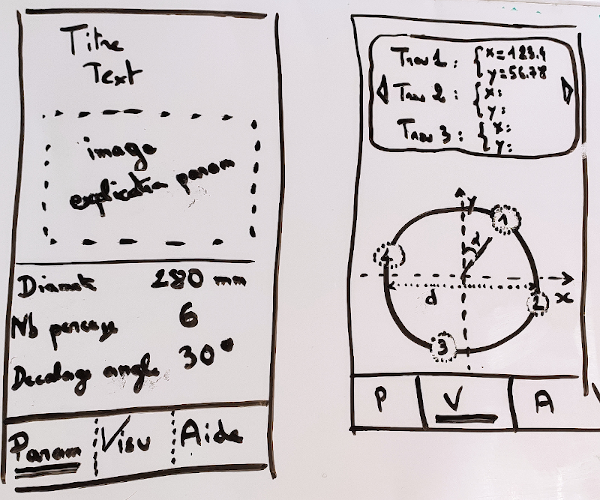 Titre
Text
image
explication param
Diamet 280 mm
Nb perçage 6
Decalage angle 30°
Param Visu Aide
Trou 1 : { x=123.4
y=56.78
Trou 2 : { x:
y:
Trou 3 : { x:
y:
y
1
α
4
d
x
2
3
P V A